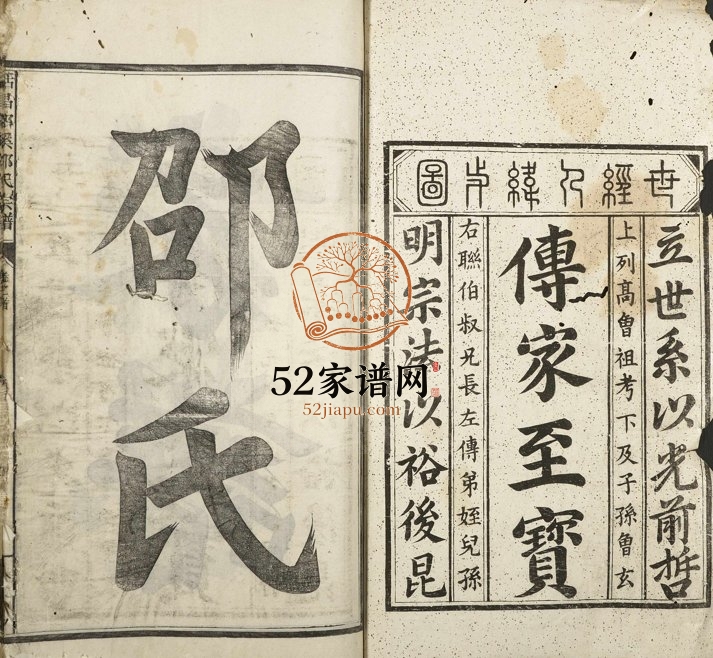 世經人緯圖
立世系以光前哲
上列髙曾祖考下及子孫曾玄
傳家至寶
右聯伯叔兄長左傳弟姪兒孫
明宗法以裕後昆
邵氏
昌邵氏宗譜
52家谱网
52jiapu.com